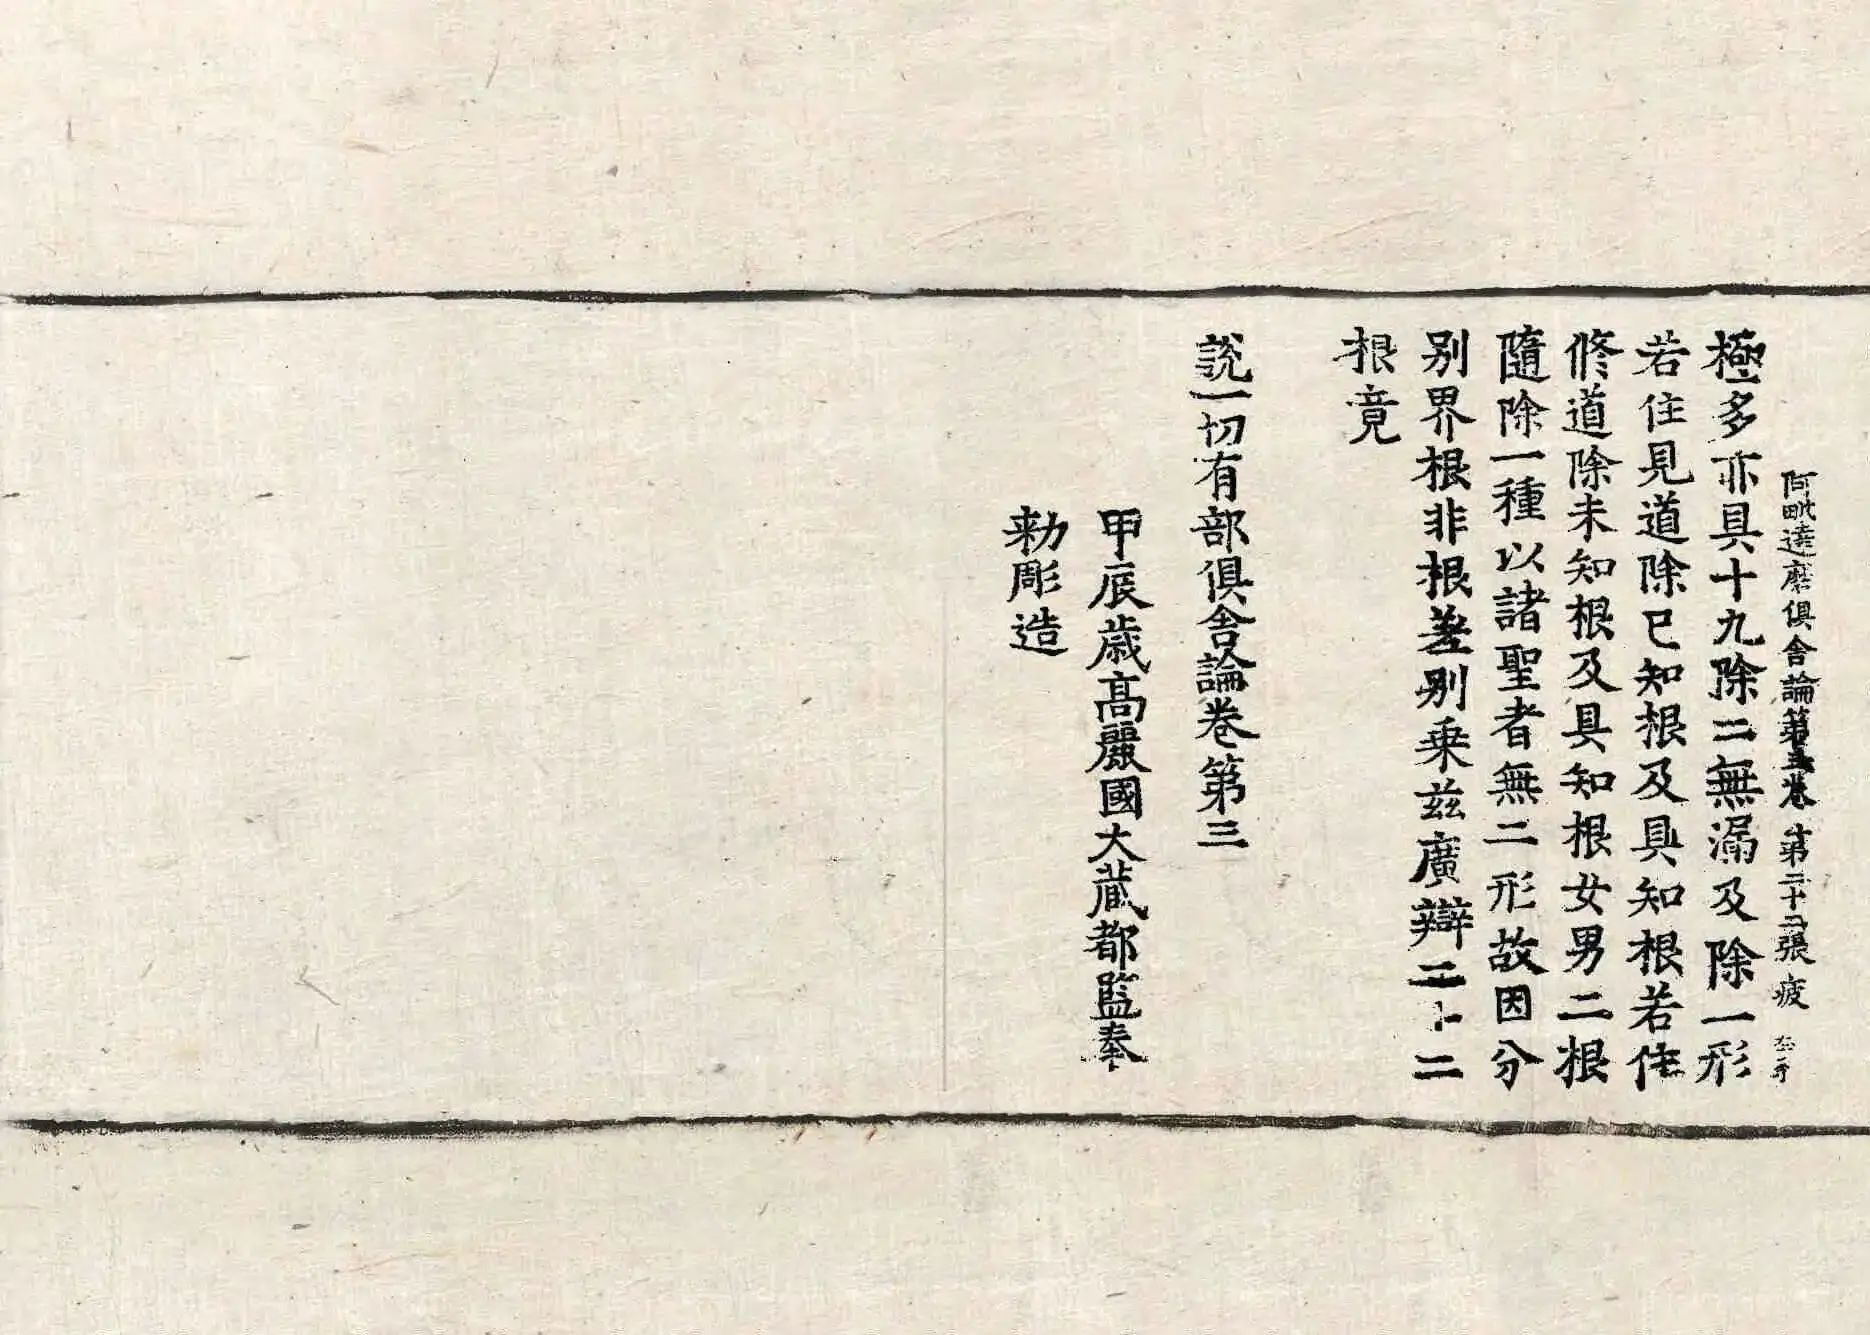 阿毗達磨俱舍論第三卷 第二十二張 疲
極多亦具十九除二無漏及除一形
若住見道除已知根及具知根若住
修道除未知根及具知根女男二根
隨除一種以諸聖者無二形故因分
别界根非根差别乗兹廣辯二十二
根竟
説一切有部俱舍論卷第三
甲辰歳髙麗國大藏都監奉
勑彫造